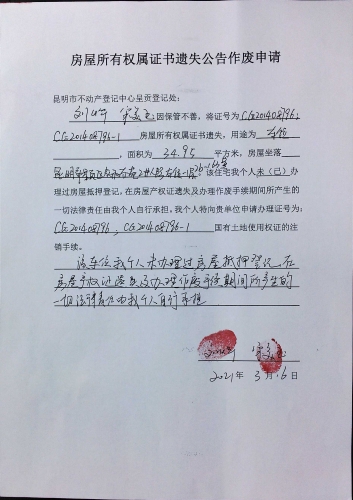 房屋所有权属证书遗失公告作废申请
昆明市不动产登记中心呈贡登记处：
因保管不善，将证号为CG201408796，
CG201408796-1 房屋所有权属证书遗失，用途为车位
，面积为 34.95 平方米，房屋坐落
该住宅我个人未（已）办
理过房屋抵押登记，在房屋产权证遗失及办理作废手续期间所产生的
一切法律责任由我个人自行承担，我个人特向贵单位申请办理证号为：
CG201408796，CG201408796-1 国有土地使用权证的注
销手续。
该车位我个人未办理过房屋抵押登记，在
房屋产权证遗失及办理作废手续期间所产生的
一切法律责任由我个人自行承担
2021年 3月 16日